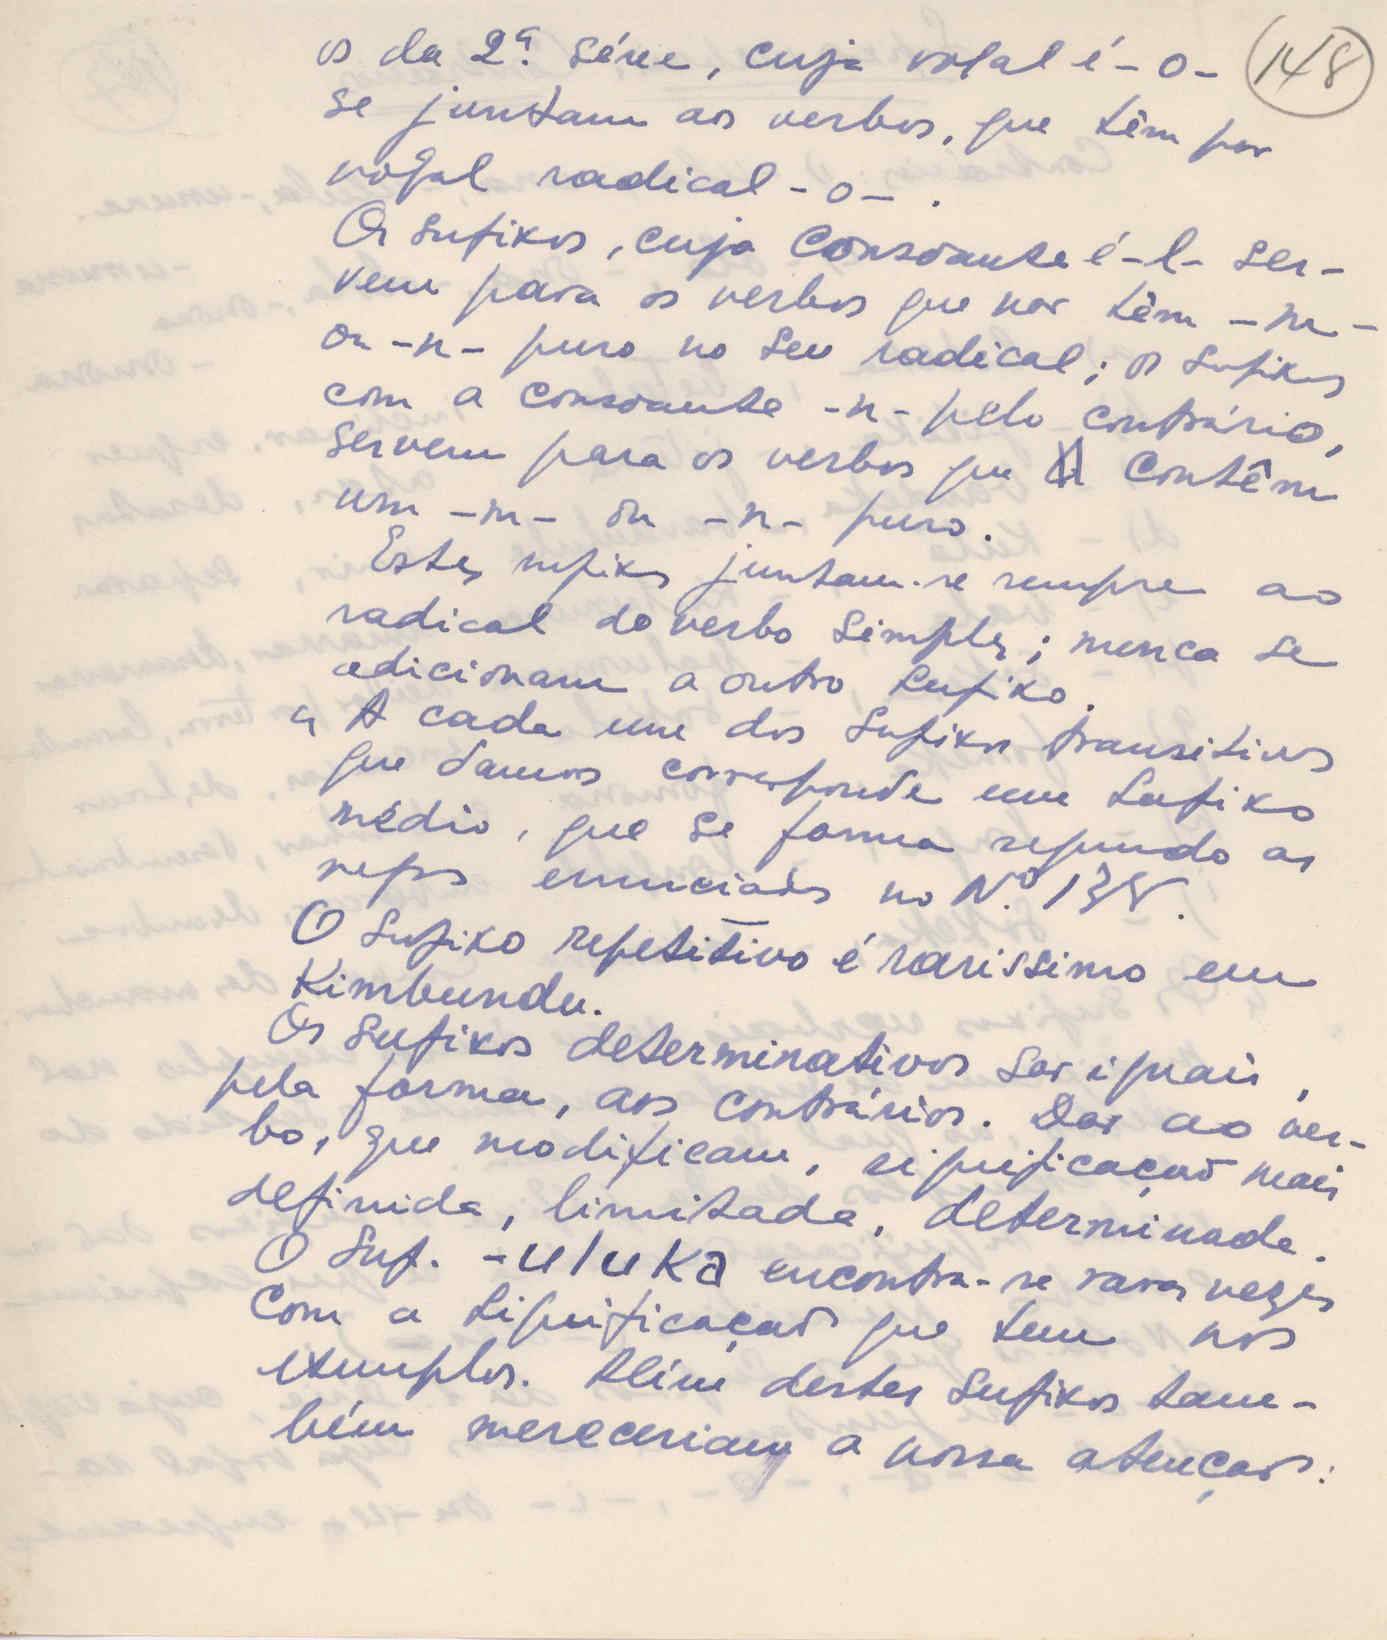 os da 2ª série, cuja vogal é -o- 148
se juntam aos verbos, que têm por
vogal radical -o-.
Os sufixos, cuja consoante é -l- ser-
vem para os verbos que não têm -m-
ou -n- puro no seu radical; os sufixos
com a consoante -n- pelo contrário,
servem para os verbos que contêm
um -m- ou -n- puro.
Estes sufixos juntam-se sempre ao
radical do verbo simples; nunca se
adicionam a outro sufixo.
A cada um dos sufixos transitivos
que damos corresponde um sufixo
médio, que se forma segundo as
regras enunciadas no N.º 138.
O sufixo repetitivo é raríssimo em
Kimbundu.
Os sufixos determinativos são iguais,
pela forma, aos contrários. Dão ao ver-
bo, que modificam, significação mais
definida, limitada, determinada.
O suf. -uluka encontra-se raras vezes
com a significação que tem nos
exemplos. Além destes sufixos tam-
bém mereceriam a nossa atenção: